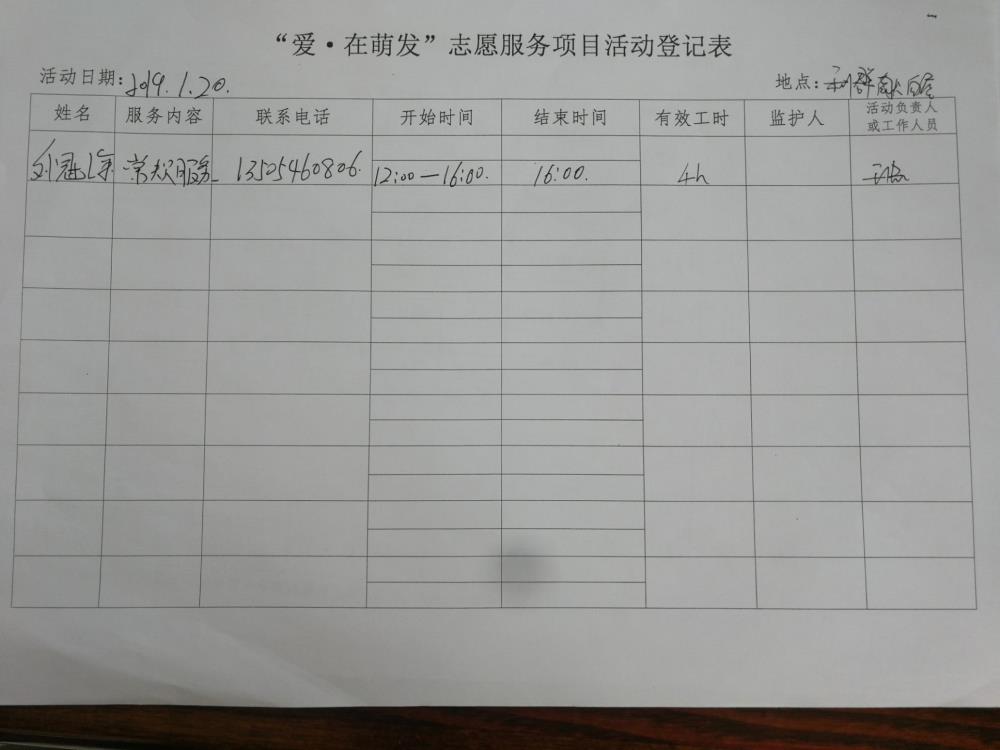 “爱·在萌发”志愿服务项目活动登记表
活动日期：2019.1.20.
地点：利群献血屋
姓名 服务内容 联系电话 开始时间 结束时间 有效工时 监护人 活动负责人
或工作人员
常规服务 13505460806. 12:00—16:00. 16:00. 4h